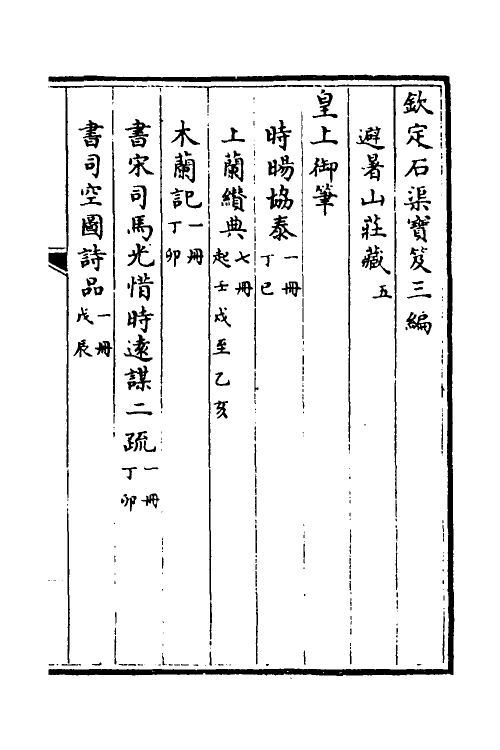 欽定石渠寶笈三編
避暑山莊藏五
皇上御筆
時暘協泰一冊丁巳
上蘭纘典七冊起壬戌至乙亥
木蘭記一冊丁卯
書宋司馬光惜時遠謀二疏一冊丁卯
書司空圖詩品一冊戊辰